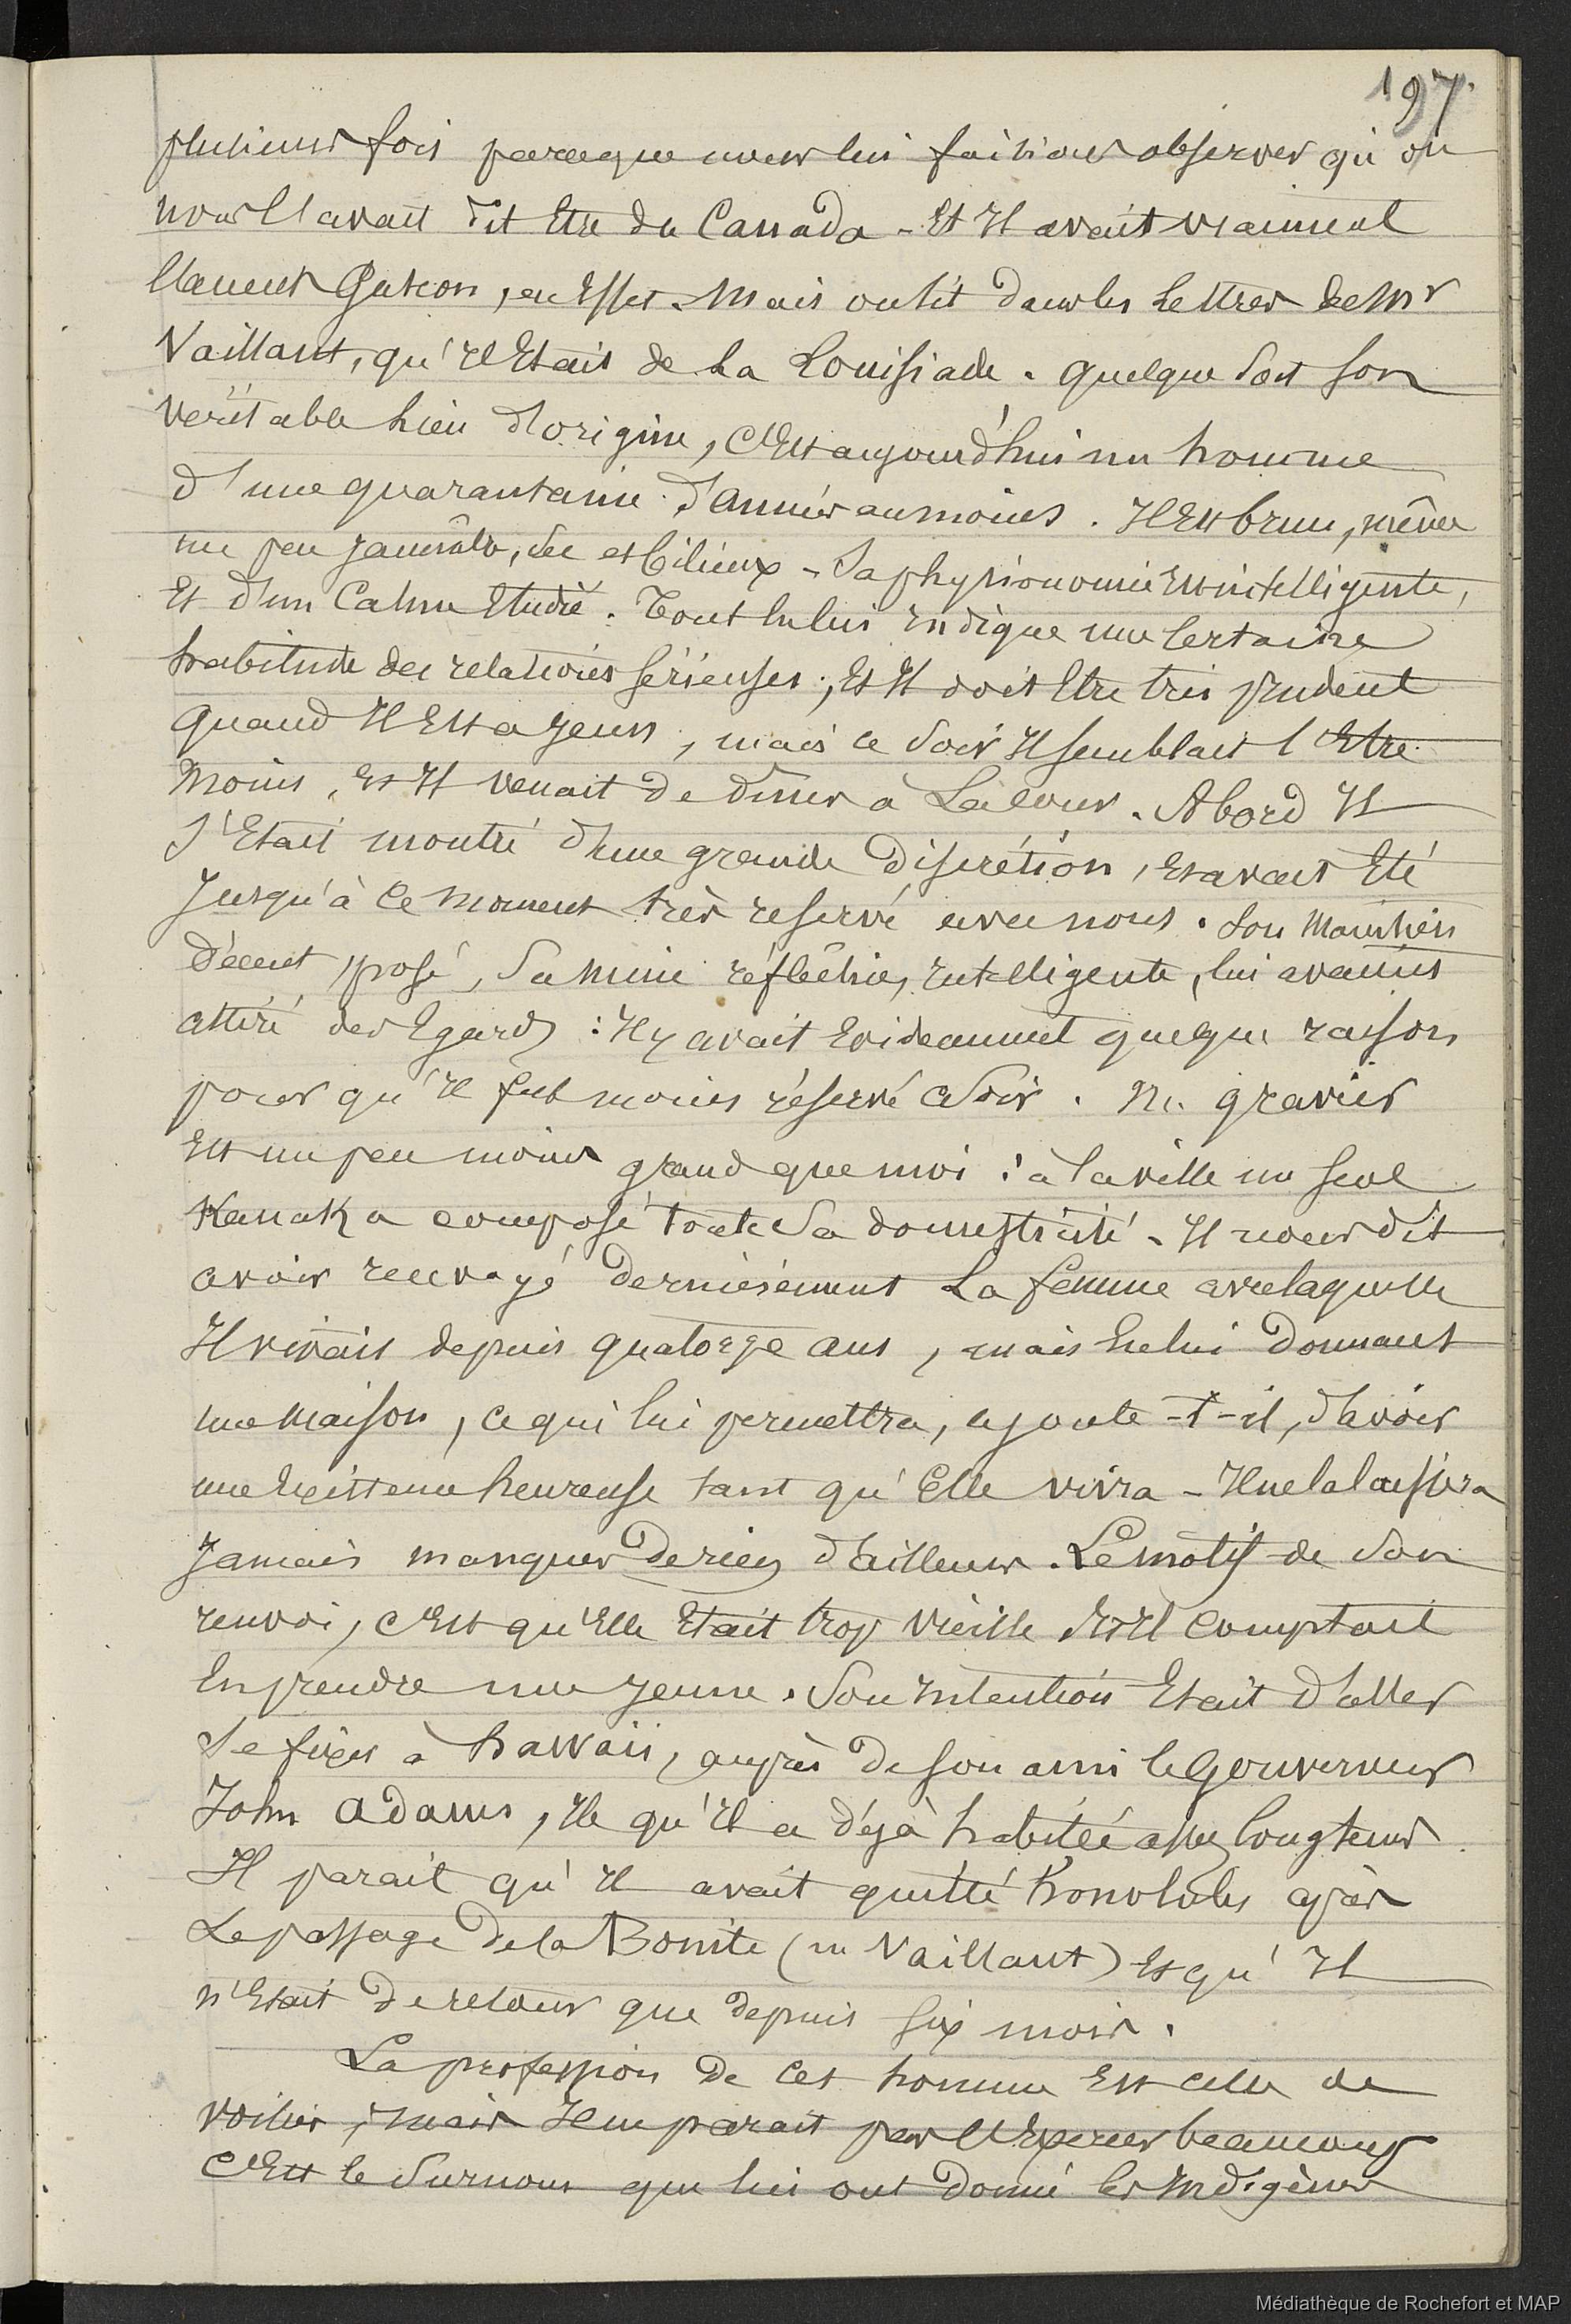 197.
plusieurs fois parceque nous lui faisions observer qu'on
nous l'avait dit être du Canada - Et Il avait vraiment
l'accent Gascon, en Effet. Mais on lit dans les Lettres de Mr
Vaillant, qu'Il Etait de La Louisiade. quelque soit son
veritable lieu d'origine, C'Est aujourd'hui un homme
d'une quarantaine d'années aumoins. Il Est brun, même
un peu jaunâtre, sec et bilieux - Sa physionomie Est intelligente,
Et d'un Calme Etudié. Tout En lui Indique une Certaine
habitude des relations sérieuses; Et Il doit Etre très prudent
quand Il Est a jeun, mais ce soir Il semblait l'Etre
moins, Et Il venait de diner à La Cour. Abord Il
s'Etait montré d'une grande discrétion, Et avait Eté
Jusqu'à ce moment très reservé avec nous. Son Maintien
décent, posé, Sa mine réfléchie, Intelligente, lui avaient
attiré des Egards : Il y avait Evideamment quelque raison
pour qu'Il fut moins réservé ce soir. M. gravier
Est un peu moins grand que moi : à la ville un seul
Kanaka compose toute sa domesticité - Il nous dit
avoir renvoyé dernièrement La femme avec laquelle
Il vivait depuis quatorze ans, mais En lui donnant
une Maison, ce qui lui permettra, ajoute-t-il, d'avoir
une Existence heureuse tant qu'Elle vivra - Il ne la laissera
Jamais manquer de rien d'ailleurs. Le motif de son
renvoi, C'Est qu'Elle Etait trop vieille Et Il Comptait
En prendre une jeune. Son Intention Etait d'aller
se fixer à hawaii, auprès de son ami le Gouverneur
John Adams, Ile qu'Il a déjà habitée assez longtems.
Il parait qu'Il avait quitté honolulu après
Le passage de la Bonite (m Vaillant) Et qu'Il
n'Etait de retour que depuis six mois.
La profession de Cet homme Est celle de
voilier, mais Il ne parait pas l'Exercer beaucoup
C'Est le surnom que lui ont donné les Indigènes
Médiathèque de Rochefort et MAP